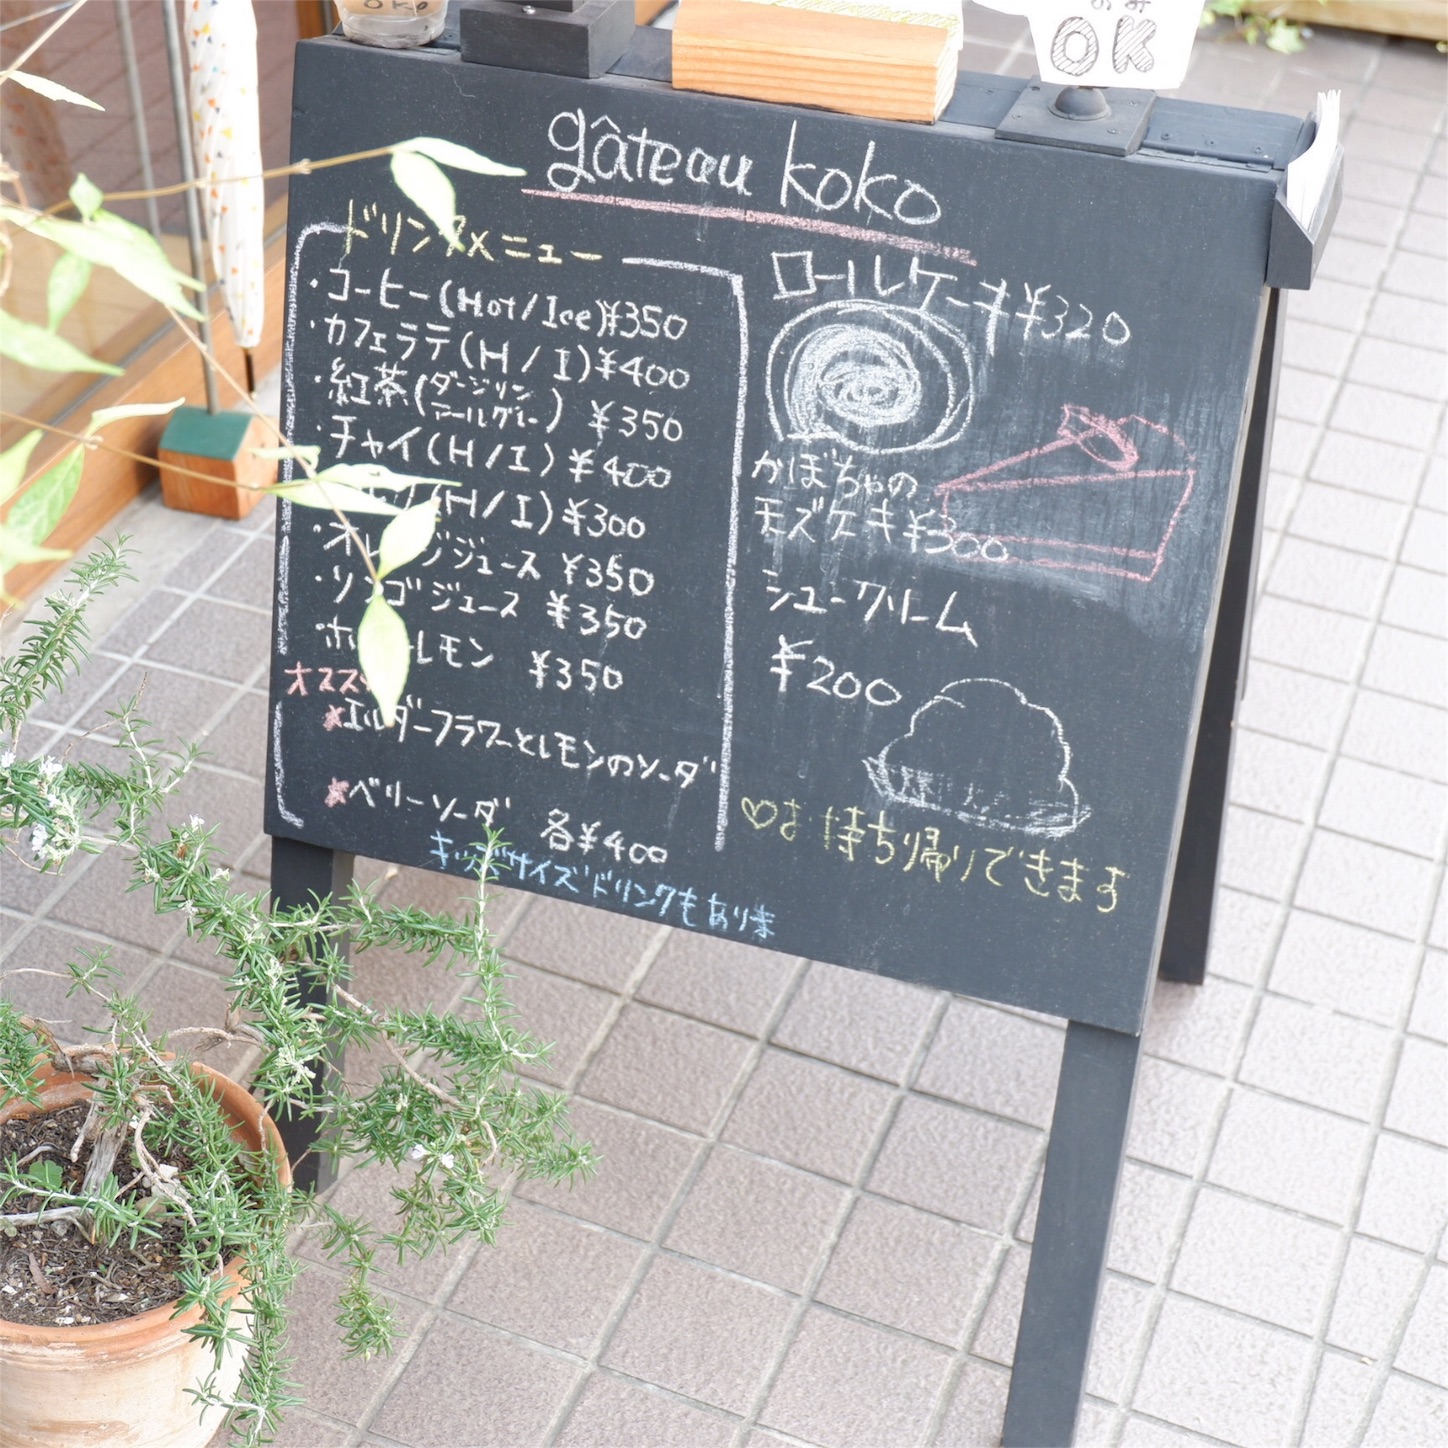 OKO
のみ
OK
gâteau koko
ドリンクメニュー
・コーヒー(Hot/Ice)¥350
・カフェラテ(H/I)¥400
・紅茶(ダージリン
アールグレー) ¥350
・チャイ(H/I)¥400
(H/I)¥300
・オレンジジュース ¥350
・リンゴジュース ¥350
・ホ レモン ¥350
オスス
★エルダーフラワーとレモンのソーダ
★ベリーソーダ 各¥400
キッズサイズドリンクもあります
ロールケーキ¥320
かぼちゃの
モズケーキ¥300
シュークリーム
¥200
♡お持ち帰りできます